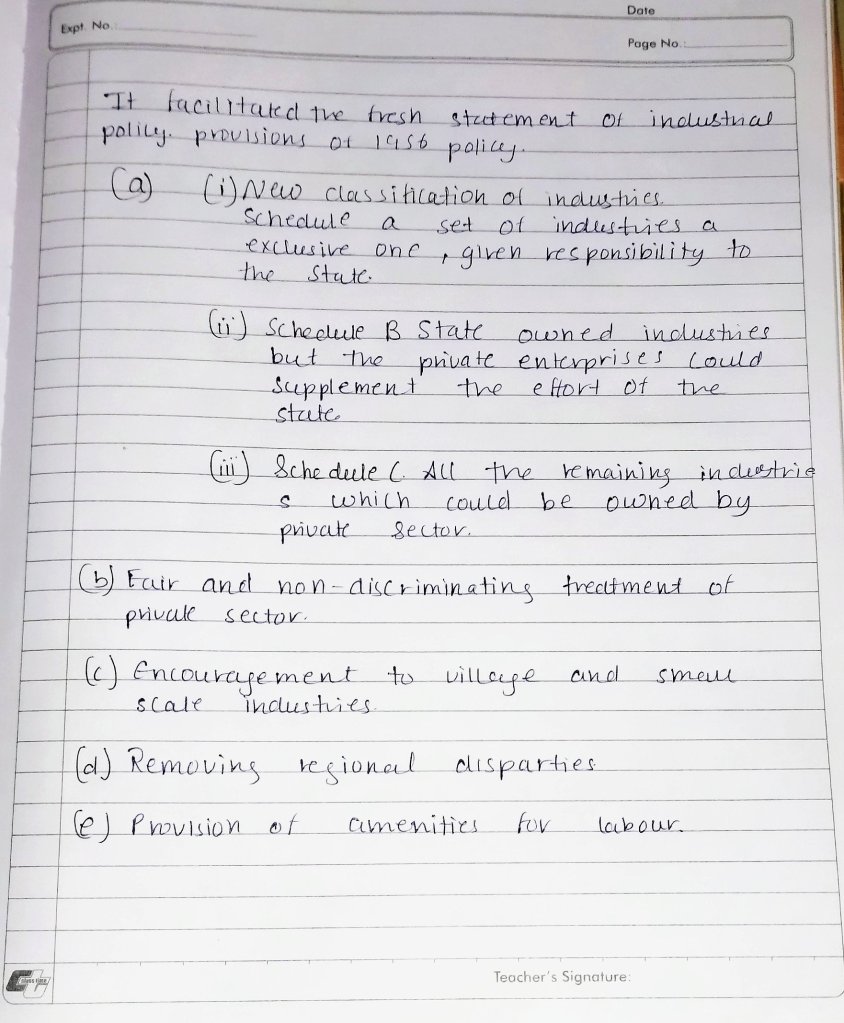 Date
Expt. No.
Page No.
It facilitated the fresh statement of industrial
policy. provisions of 1956 policy.
(a) (i) New classification of industries.
Schedule a set of industries a
exclusive one, given responsibility to
the State.
(ii) Schedule B State owned industries
but the private enterprises could
supplement the effort of the
state
(iii) Schedule C. All the remaining industrie
s which could be owned by
private sector.
(b) Fair and non-discriminating treatment of
private sector.
(c) Encouragement to village and small
scale industries.
(d) Removing regional disparties
(e) Provision of amenities for labour.
Teacher's Signature: